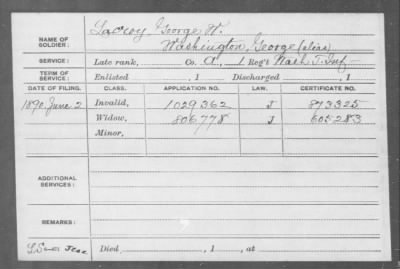 NAME OF SOLDIER: George W.
Washington, George (alias)
SERVICE: Late rank, Co. A, 1 Reg't Wash. T. Inf
TERM OF SERVICE: Enlisted , 1 Discharged , 1
DATE OF FILING. CLASS. APPLICATION NO. LAW. CERTIFICATE NO.
1890, June 2 Invalid, 1029362 J 873325
Widow, 806778 J 605283
Minor,
ADDITIONAL SERVICES:
REMARKS:
Died , 1 , at